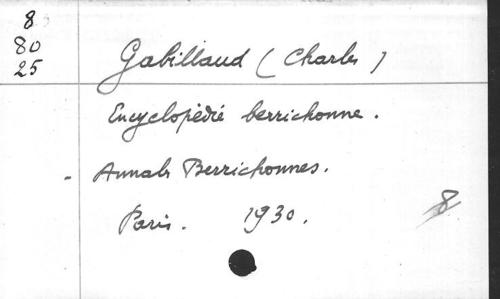 8
80
25
Gabillaud (Charles)
Encyclopédie berrichonne.
- Annales Berrichonnes.
Paris. 1930.
8